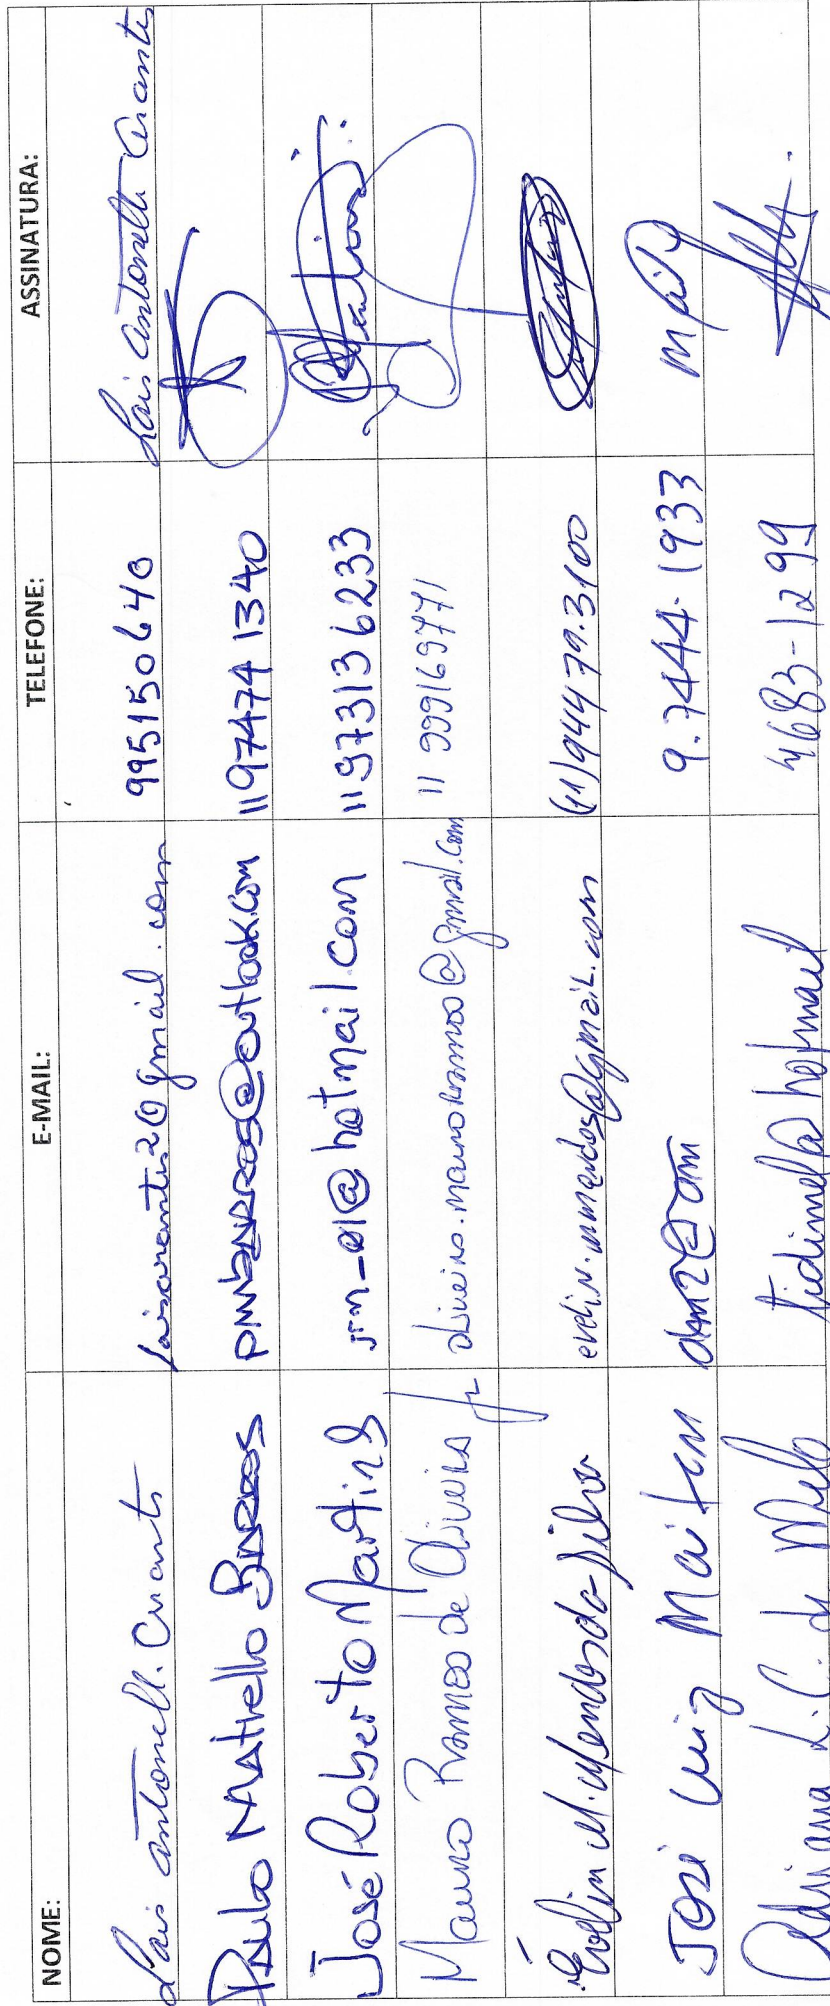 NOME: E-MAIL: TELEFONE: ASSINATURA:
Lais Antonelli Arantes laisarantes2@gmail.com 995150640 Lais Antonelli Arantes
Paulo Matiello Barros pmbarros@outlook.com 11974741340
José Roberto Martins jrm_01@hotmail.com 11973136233
Mauro Ramos de Oliveira Jr oliveira.mauroramos@gmail.com 11 999169771
Evelin M. Mendes da Silva evelin.mmendes@gmail.com (11)94479.3100
José Luiz 9.7444-1933
Adriana L.C. de Melo tidimella@hotmail 4683-1299